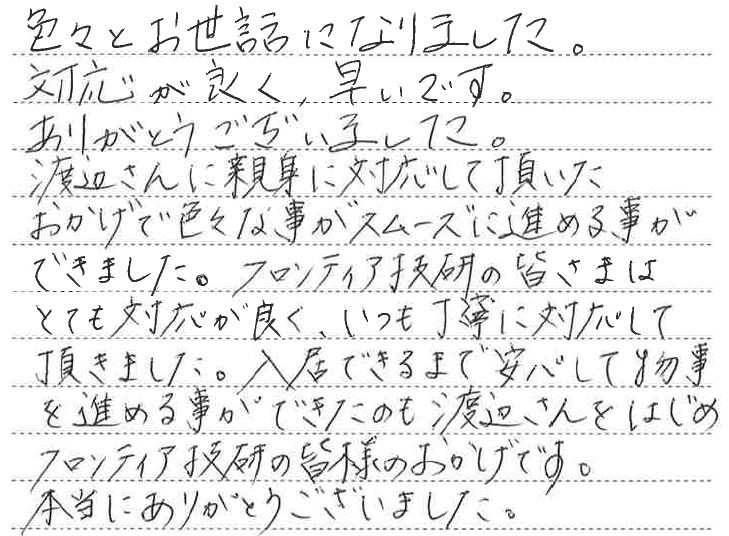 色々とお世話になりました。
対応が良く、早いです。
ありがとうございました。
渡辺さんに親身に対応して頂いた
おかげで色々な事がスムーズに進める事が
できました。フロンティア技研の皆さまは
とても対応が良く、いつも丁寧に対応して
頂きました。入居できるまで安心して物事
を進める事ができたのも渡辺さんをはじめ
フロンティア技研の皆様のおかげです。
本当にありがとうございました。